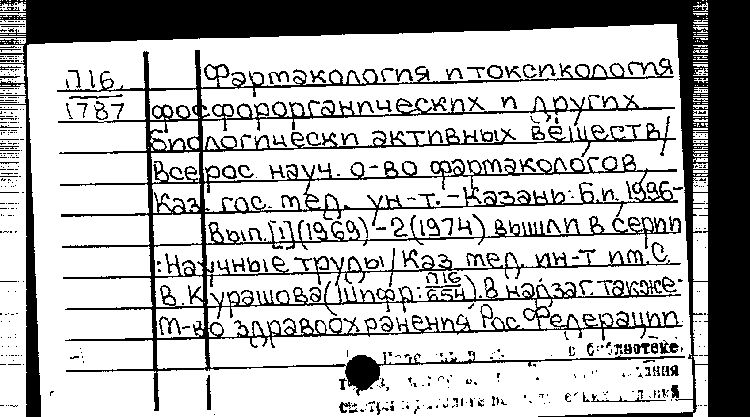 П16 Фармакология и токсикология
1787 фосфорорганических и других
биологически активных веществ/
Всерос. науч. о-во фармакологов,
Каз. гос. мед. ун-т. - Казань: Б.и. 1996-
Вып. [1] (1969) - 2 (1974) вышли в серии
: Научные труды/ Каз. мед. ин-т им. С.
В. Курашова (Шифр: П16/654). В надзаг. также:
М-во здравоохранения Рос. Федерации
в библиотеке.